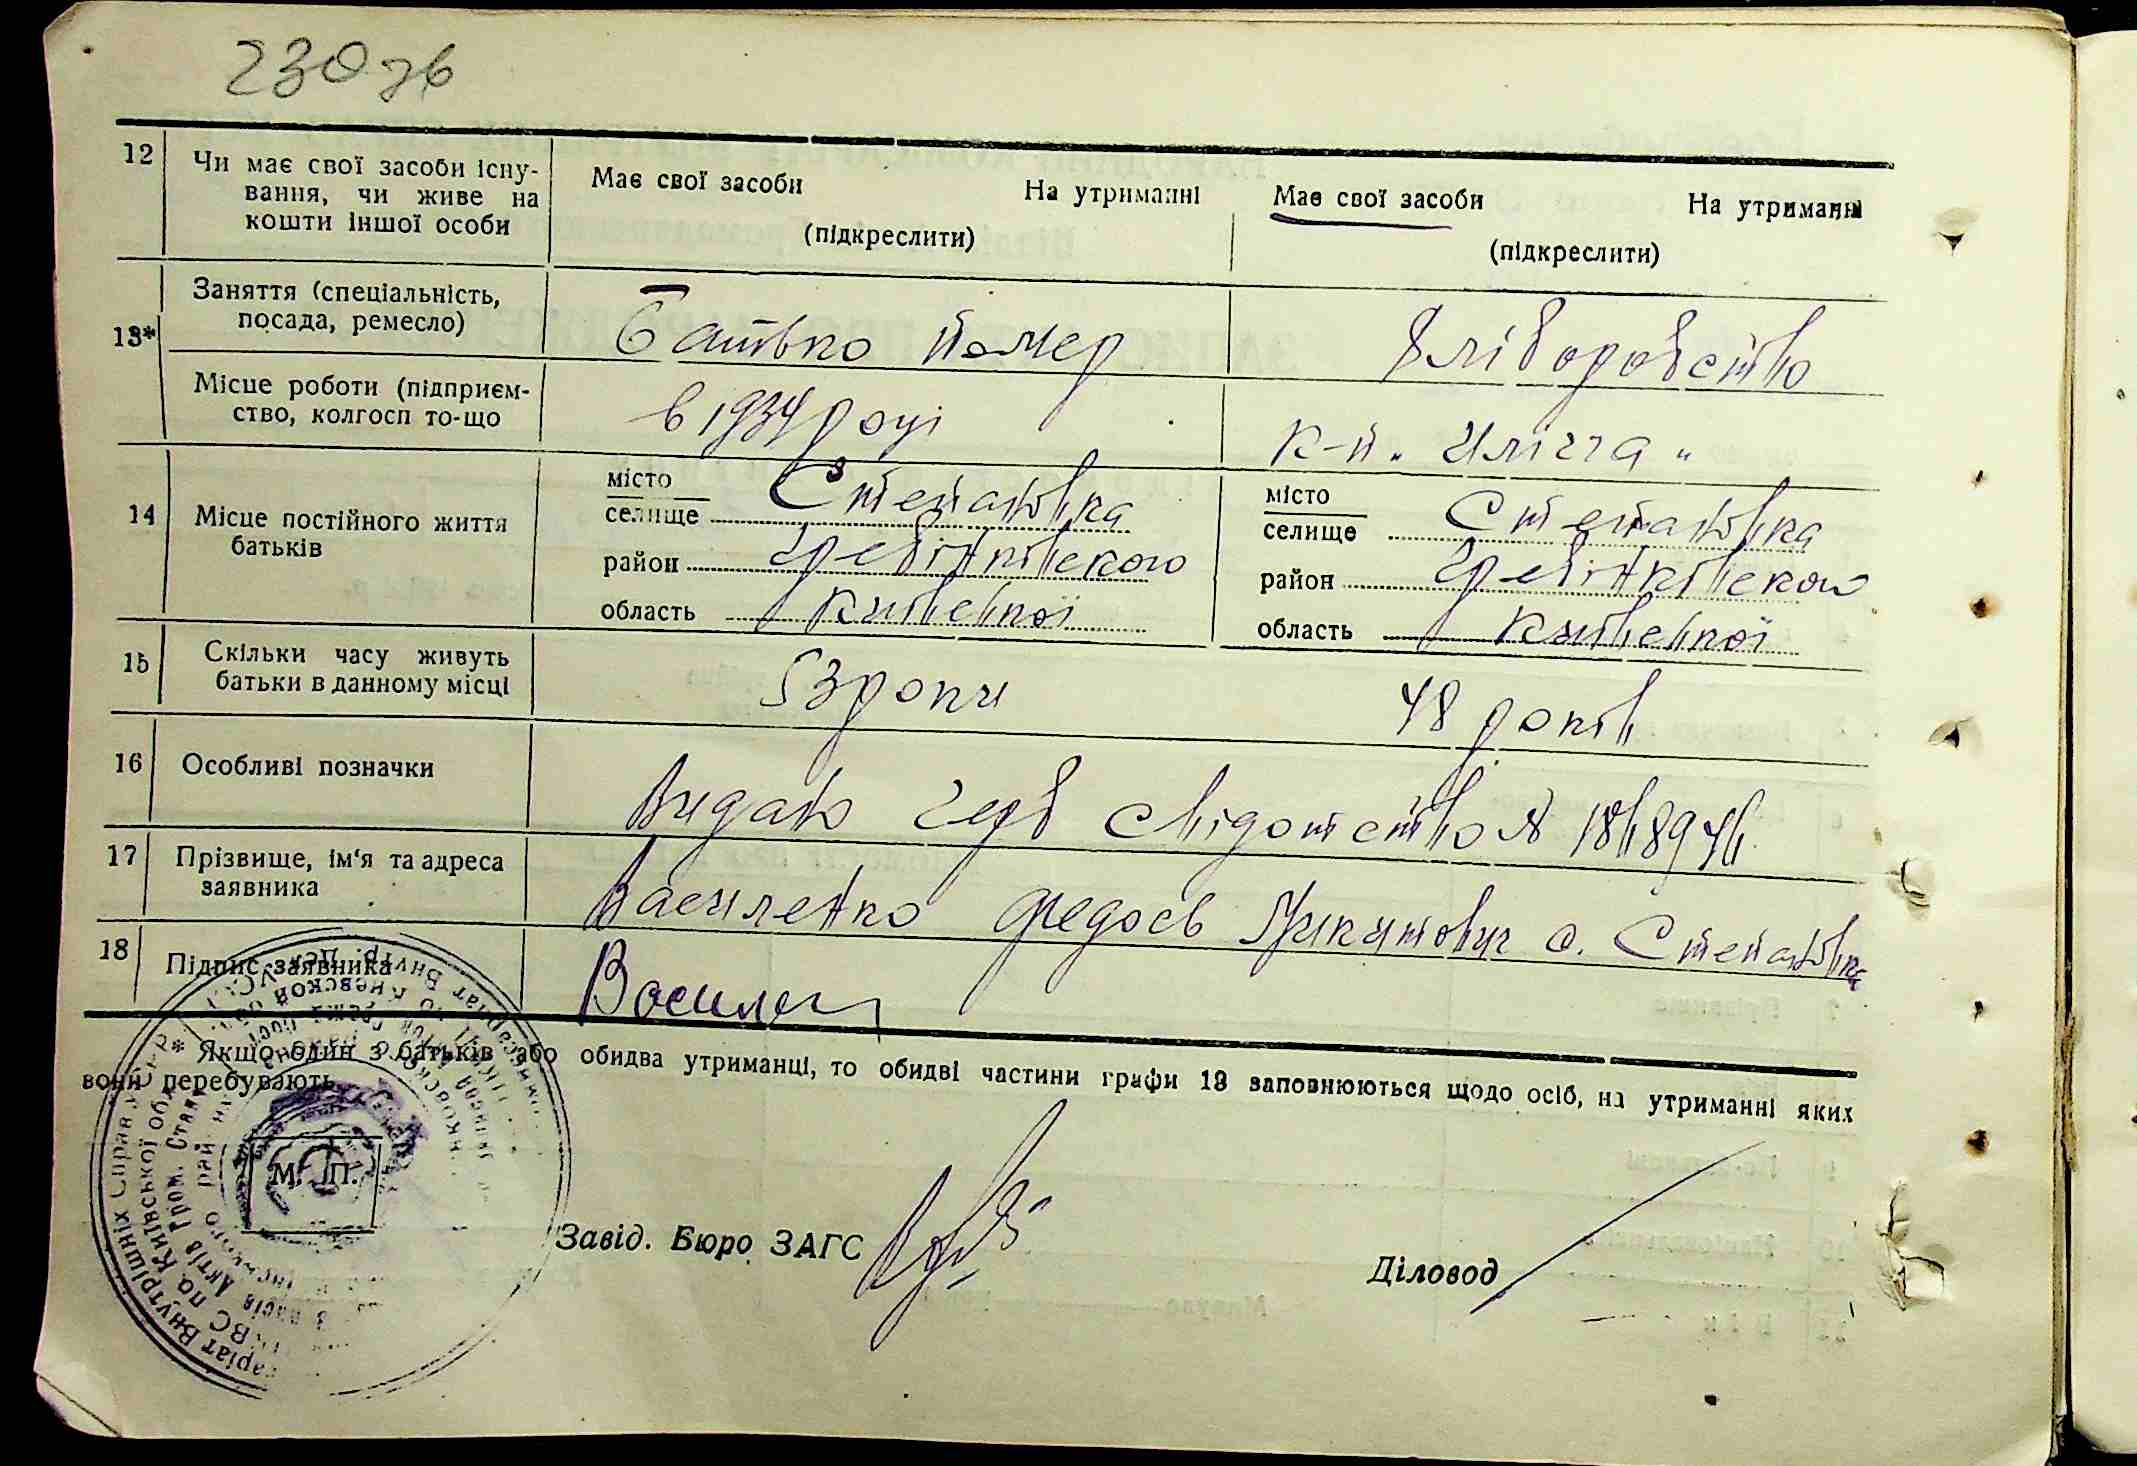 230 зв
12 Чи має свої засоби існу-
вання, чи живе на
кошти іншої особи
Має свої засоби На утриманні
(підкреслити)
Має свої засоби На утриманні
(підкреслити)
13* Заняття (спеціальність,
посада, ремесло)
Батько помер
Хліборобство
Місце роботи (підприєм-
ство, колгосп то-що
в 1934 році
К-п „Ілліча"
14 Місце постійного життя
батьків
місто
селище Степанівка
район Гребінківского
область Київської
місто
селище Степанівка
район Гребінківского
область Київської
15 Скільки часу живуть
батьки в данному місці
53 роки
48 років
16 Особливі позначки
Видано герб свідотство №
17 Прізвище, ім'я та адреса
заявника
Василенко Федось Микитович с. Степанівка
18 Підпис заявника
Василен
* Якщо один з батьків або обидва утриманці, то обидві частини графи 13 заповнюються щодо осіб, на утриманні яких
вони перебувають
М. П.
Завід. Бюро ЗАГС
Діловод